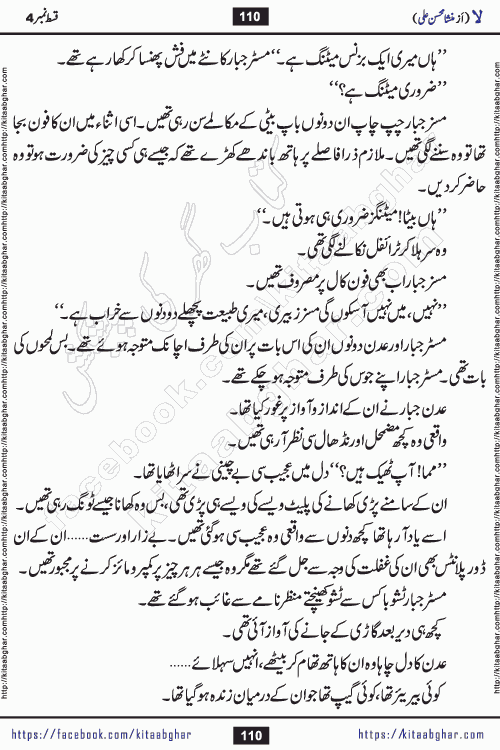 لا (از منشا محسن علی) 110 قسط نمبر 4
’’ہاں میری ایک بزنس میٹنگ ہے۔‘‘ مسٹر جبار کانٹے میں فش پھنسا کر کھا رہے تھے۔
’’ضروری میٹنگ ہے؟‘‘
مسز جبار چپ چاپ ان دونوں باپ بیٹی کے مکالمے سن رہی تھیں۔ اسی اثناء میں ان کا فون بجا
تھا تو وہ سننے لگی تھیں۔ ملازم ذرا فاصلے پر ہاتھ باندھے کھڑے تھے کہ جیسے ہی کسی چیز کی ضرورت ہو تو وہ
حاضر کر دیں۔
’’ہاں بیٹا! میٹنگز ضروری ہی ہوتی ہیں۔‘‘
وہ سر ہلا کر ٹرائفل نکالنے لگی تھی۔
مسز جبار اب بھی فون کال پر مصروف تھیں۔
’’نہیں، میں نہیں آ سکوں گی مسز زبیری، میری طبیعت پچھلے دو دنوں سے خراب ہے۔‘‘
مسٹر جبار اور عدن دونوں ان کی اس بات پر ان کی طرف اچانک متوجہ ہوئے تھے۔ بس لمحوں کی
بات تھی۔ مسٹر جبار اپنے جوس کی طرف متوجہ ہو چکے تھے۔
عدن جبار نے ان کے انداز و آواز پر غور کیا تھا۔
واقعی وہ کچھ مضمحل اور نڈھال سی نظر آ رہی تھیں۔
’’مما! آپ ٹھیک ہیں؟‘‘ دل میں عجیب سی بے چینی نے سر اٹھایا تھا۔
ان کے سامنے پڑی کھانے کی پلیٹ ویسے کی ویسے ہی پڑی تھی، بس وہ کھانا جیسے ٹونگ رہی تھیں۔
اسے یاد آ رہا تھا کچھ دنوں سے واقعی وہ عجیب سی ہو گئی تھیں۔ بے زار اور سست...... ان کے ان
ڈور پلانٹس بھی ان کی غفلت کی وجہ سے جل گئے تھے مگر وہ جیسے ہر ہر چیز پر کمپرومائز کرنے پر مجبور تھیں۔
مسٹر جبار ٹشو باکس سے ٹشو کھینچتے منظر نامے سے غائب ہو گئے تھے۔
کچھ ہی دیر بعد گاڑی کے جانے کی آواز آئی تھی۔
عدن کا دل چاہا وہ ان کا ہاتھ تھام کر بیٹھے، انہیں سہلائے......
کوئی بیریئر تھا، کوئی گیپ تھا جو ان کے درمیان زندہ ہو گیا تھا۔
https://facebook.com/kitaabghar 110 https://kitaabghar.com
http://kitaabghar.com
کتاب گھر کی پیشکش
facebook.com/kitaabghar
kitaabghar.com